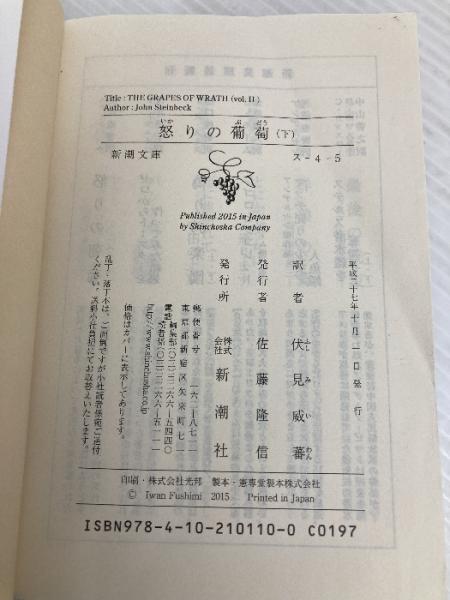 Title : THE GRAPES OF WRATH (vol. II)
Author : John Steinbeck
怒りの葡萄（下）
いか　ぶ　どう
新潮文庫
ス－4－5
Published 2015 in Japan
by Shinchosha Company
平成二十七年十月一日発行
訳者　伏見威蕃
ふし　み　い　わん
発行者　佐藤隆信
発行所　株式会社　新潮社
郵便番号　一六二－八七一一
東京都新宿区矢来町七一
電話 編集部(〇三)三二六六－五四四〇
読者係(〇三)三二六六－五一一一
http://www.shinchosha.co.jp
価格はカバーに表示してあります。
乱丁・落丁本は、ご面倒ですが小社読者係宛ご送付
ください。送料小社負担にてお取替えいたします。
印刷・株式会社光邦　製本・憲専堂製本株式会社
© Iwan Fushimi 2015 Printed in Japan
ISBN978-4-10-210110-0 C0197